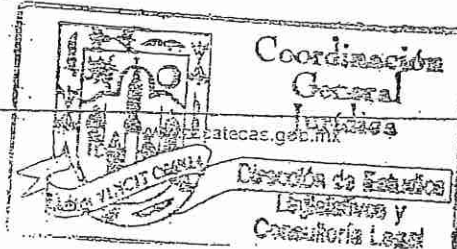 Coordinación
General
Jurídica
zacatecas.gob.mx
VINCIT OMNIA
Dirección de Estudios
Legislativos y
Consultoría Legal